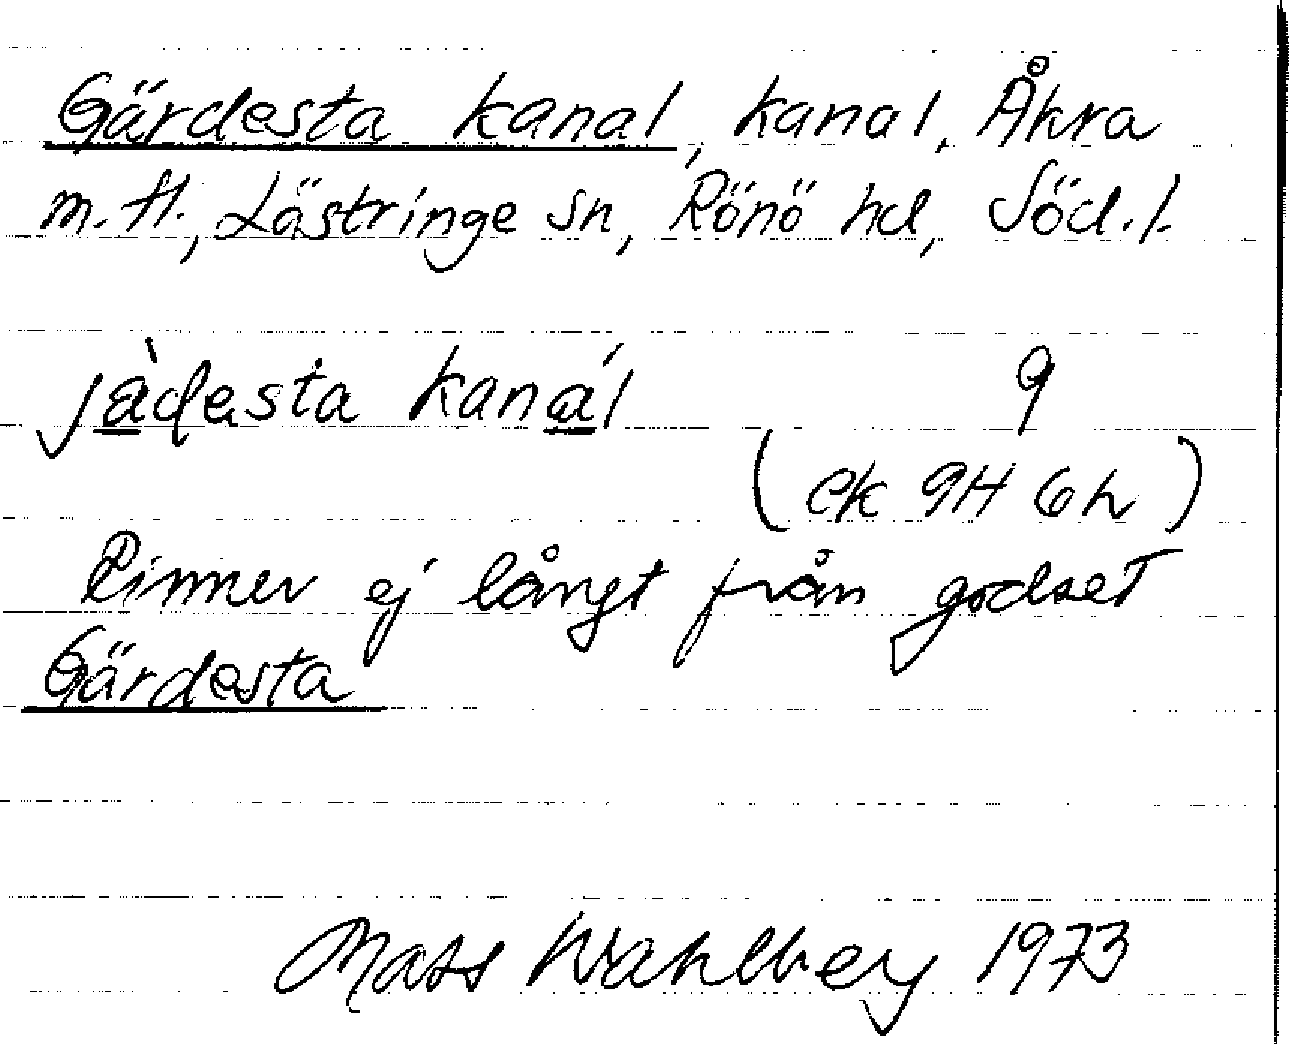 Gärdesta kanal, kanal, Åkra
m. fl., Lästringe sn, Rönö hd, Söd.l.
jàdesta kanál 9
(ek 9H 6h)
Rinner ej långt från godset
Gärdesta
Mats Wahlberg 1973